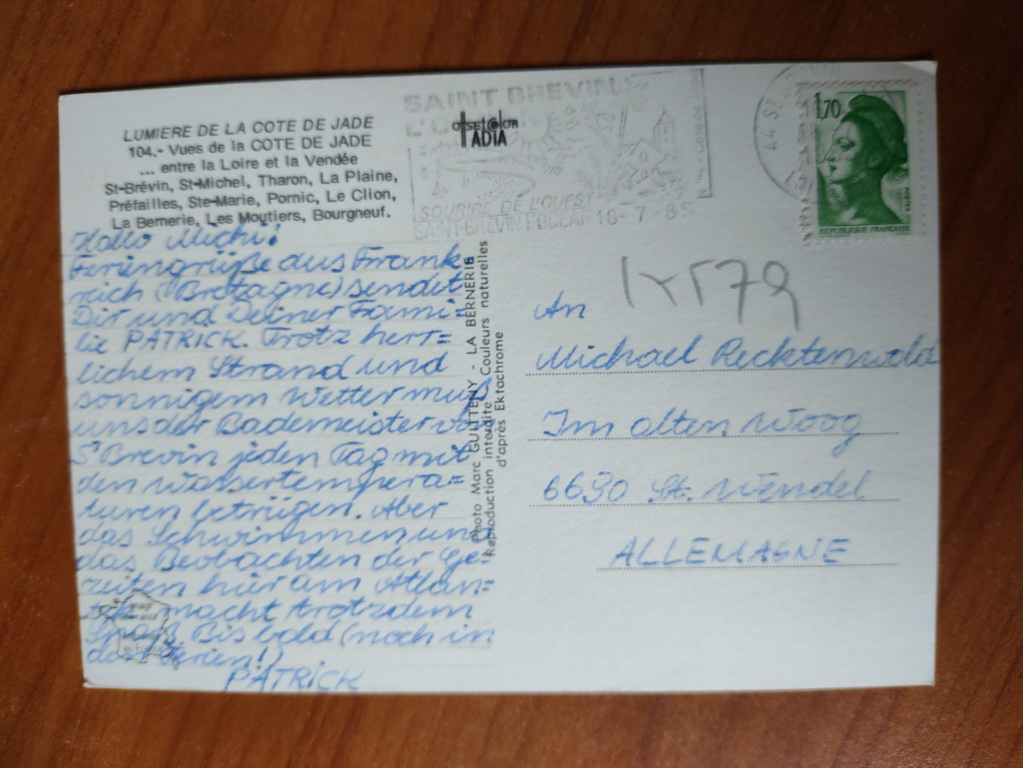 LUMIERE DE LA COTE DE JADE
104.- Vues de la COTE DE JADE
... entre la Loire et la Vendée
St-Brévin, St-Michel, Tharon, La Plaine,
Préfailles, Ste-Marie, Pornic, Le Clion,
La Bernerie, Les Moutiers, Bourgneuf.
Hallo Michi!
Feriengrüße aus Frank-
reich (Bretagne) sendet
Dir und Deiner Fami-
lie PATRICK. Trotz herr=
lichem Strand und
sonnigem Wetter muß
uns der Bademeister von
S' Brevin jeden Tag mit
den Wassertempera=
turen betrügen. Aber
das Schwimmen und
das Beobachten der Ge-
zeiten hier am Atlan=
tik macht trotzdem
Spaß. Bis bald (noch in
den Ferien!)
PATRICK
Photo Marc GUITTENY - LA BERNERIE
Reproduction interdite Couleurs naturelles
d'après Ektachrome
SAINT BREVIN
SOURIRE DE L'OUEST
SAINT-BREVIN L'OCEAN 10-7-85
ADIA
44 ST
1,70
REPUBLIQUE FRANÇAISE
An
Michael Recktenwald
Im alten Woog
6690 St. Wendel
ALLEMAGNE